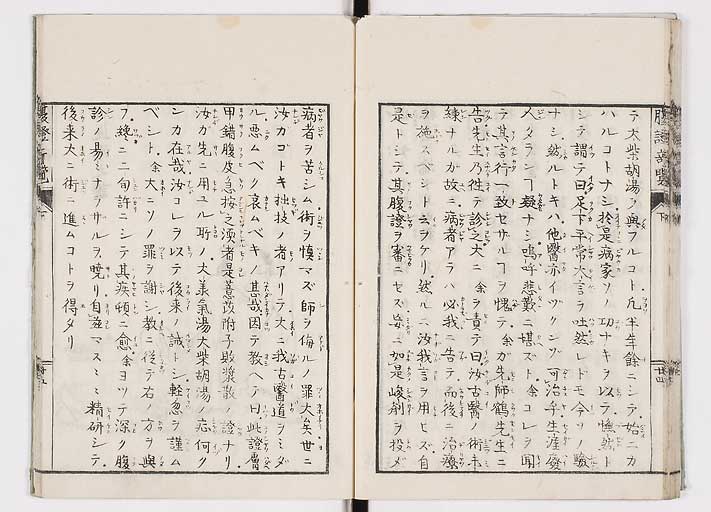 腹證奇覽
下
廿四
テ大柴胡湯ヲ與フルコト凡半年餘ニシテ始ニカ
ハルコトナシ於是病家ソノ功ナキヲ以テ憮然ト
シテ謂テ曰足下平常大言ヲ吐然レドモ今ソノ驗
ナシ然ルトキハ他醫亦イヅクンゾ可治乎生涯廢
人タランコト疑ナシ嗚呼悲歎ニ堪ズト余コレヲ聞
テ其言行一致セザルコトヲ愧テ余ガ先師鶴先生ニ
告先生乃徃テ診之大ニ余ヲ責テ曰汝古醫ノ術未
練ナルガ故ニ病者アラハ必我ニ告テ而後ニ治療
ヲ施スベシト云ヲケリ然ルニ汝我言ヲ用ヒズ自
是トシテ其腹證ヲ審ニセズ妄ニ如是峻劑ヲ投メ
病者ヲ苦シム術ヲ慎マズ師ヲ侮ルノ罪大矣世ニ
汝カゴトキ拙技ノ者アリテ大ニ我古醫道ヲミダ
ル悪ムベク哀ムベキノ甚哉因テ教ヘテ曰此證膚
甲錯腹皮急按之濡者是薏苡附子敗漿散ノ證ナリ
汝ガ先ニ用ユル所ノ大美氣湯大柴胡湯ノ症何ク
ンカ在哉汝コレヲ以テ後来ノ誡トシ輕忽ヲ謹ム
ベシト余大ニソノ罪ヲ謝シ教ニ従テ右ノ方ヲ與
フ纔ニ二旬許ニシテ其病頓ニ愈余ヨツテ深ク腹
診ノ昜ミナラザルヲ曉リ自
マスミミ精研シテ
後来大ニ術ニ進ムコトヲ得タリ
腹證奇覽
廿五